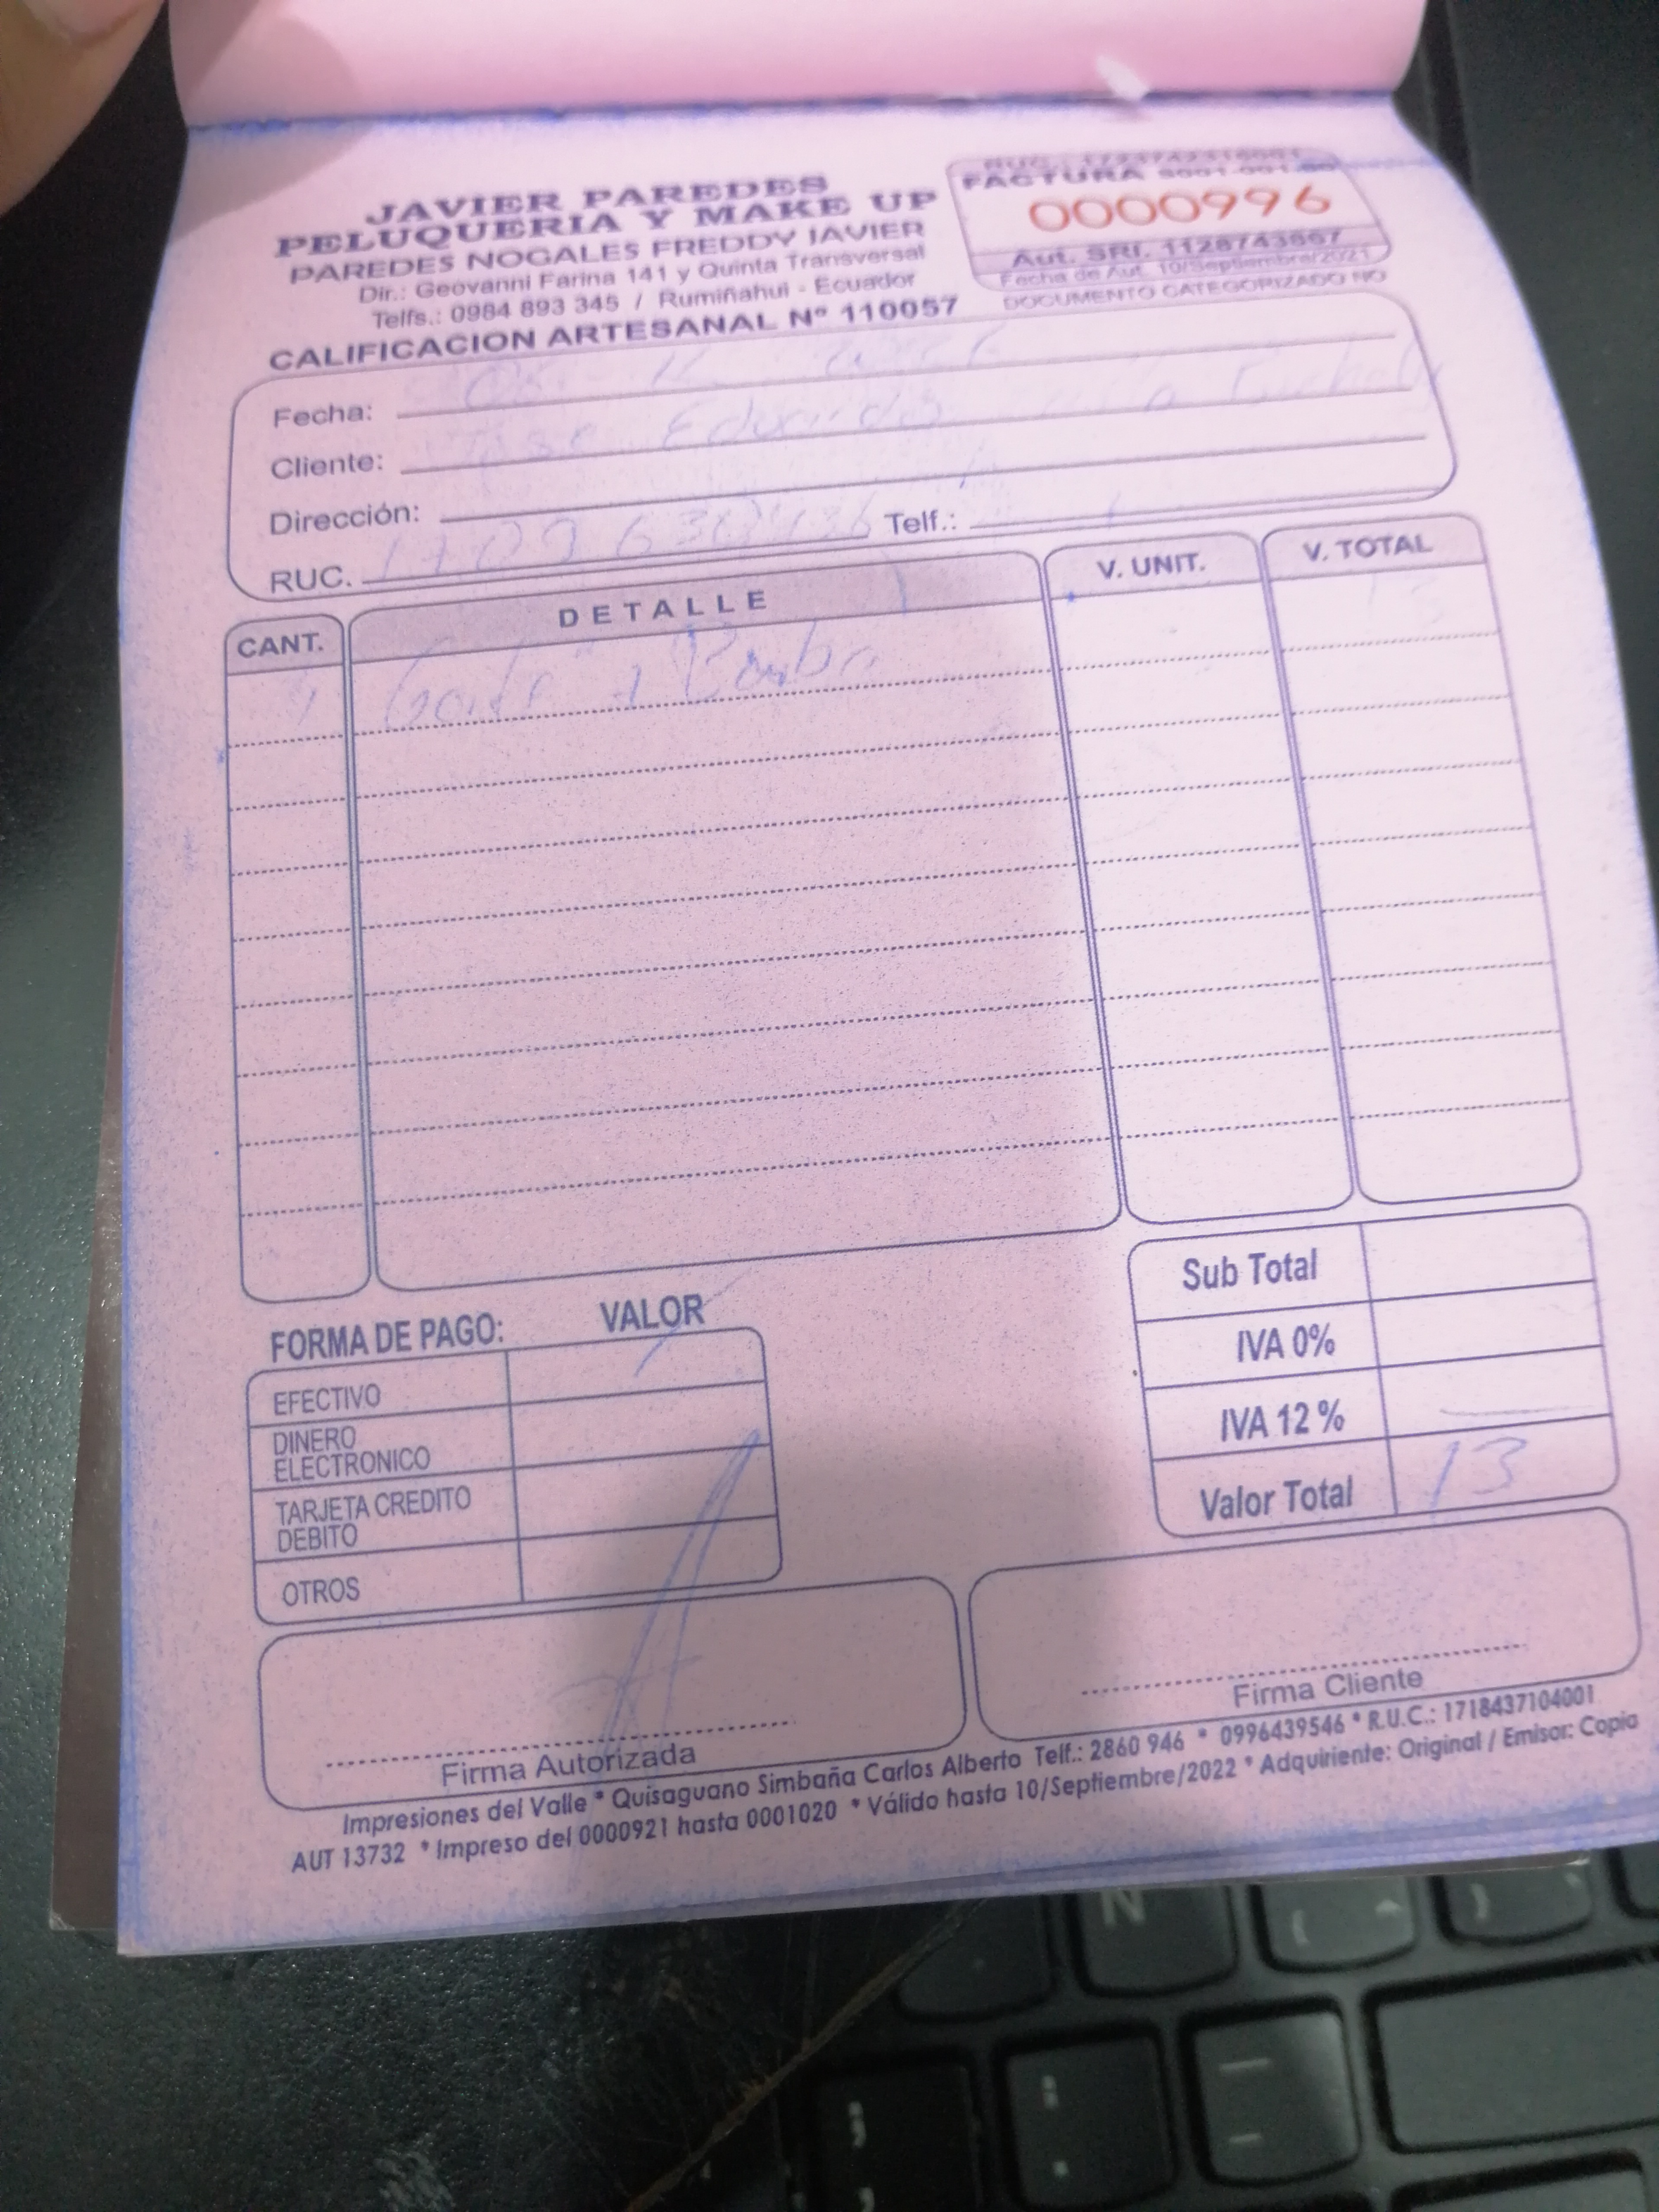 JAVIER PAREDES
PELUQUERIA Y MAKE UP
PAREDES NOGALES FREDDY JAVIER
Dir.: Geovanni Farina 141 y Quinta Transversal
Telfs.: 0984 893 345 / Rumiñahui - Ecuador
CALIFICACION ARTESANAL Nº 110057
FACTURA
0000996
Aut. SRI. 1128743667
Fecha de Aut. 10/Septiembre/2021
DOCUMENTO CATEGORIZADO NO
Fecha:
Cliente: Jose Eduardo
Dirección:
RUC. Telf.:
CANT. DETALLE V. UNIT. V. TOTAL
1 Barba
FORMA DE PAGO: VALOR
EFECTIVO
DINERO
ELECTRONICO
TARJETA CREDITO
DEBITO
OTROS
Sub Total
IVA 0%
IVA 12 %
Valor Total 13
Firma Autorizada
Firma Cliente
Impresiones del Valle * Quisaguano Simbaña Carlos Alberto Telf.: 2860 946 * 0996439546 * R.U.C.: 1718437104001
AUT 13732 * Impreso del 0000921 hasta 0001020 * Válido hasta 10/Septiembre/2022 * Adquiriente: Original / Emisor: Copia
N